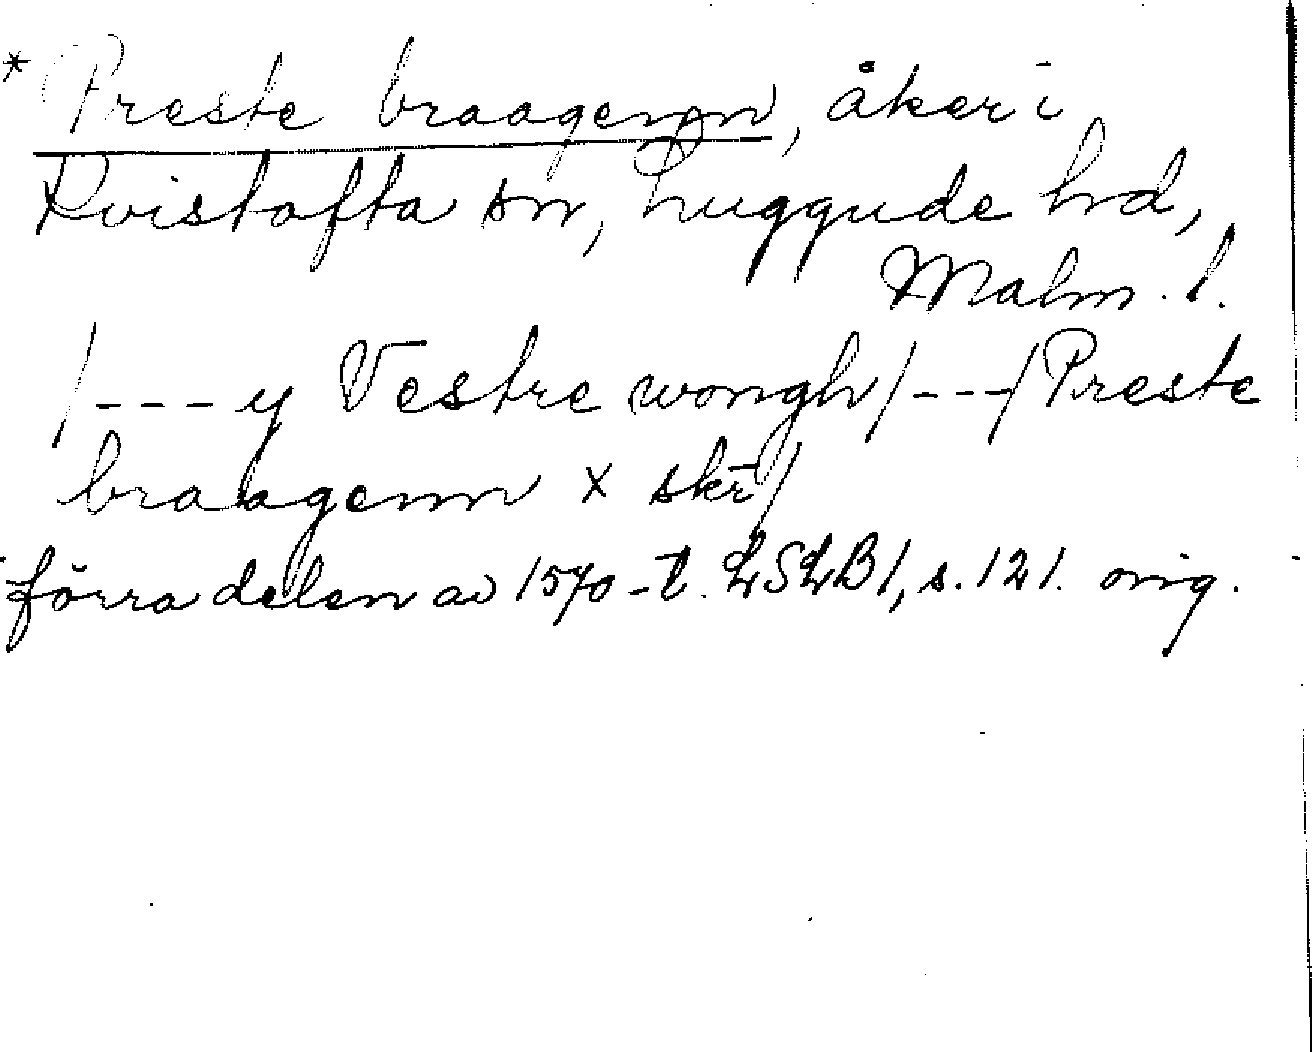 * Preste braagenn, åker i
Kvistofta sn, Luggude hd,
Malm. l.
/---y Vestre wongh/---/Preste
braagenn x skr/
förra delen av 1570-t. LSLB1, s. 121. orig.